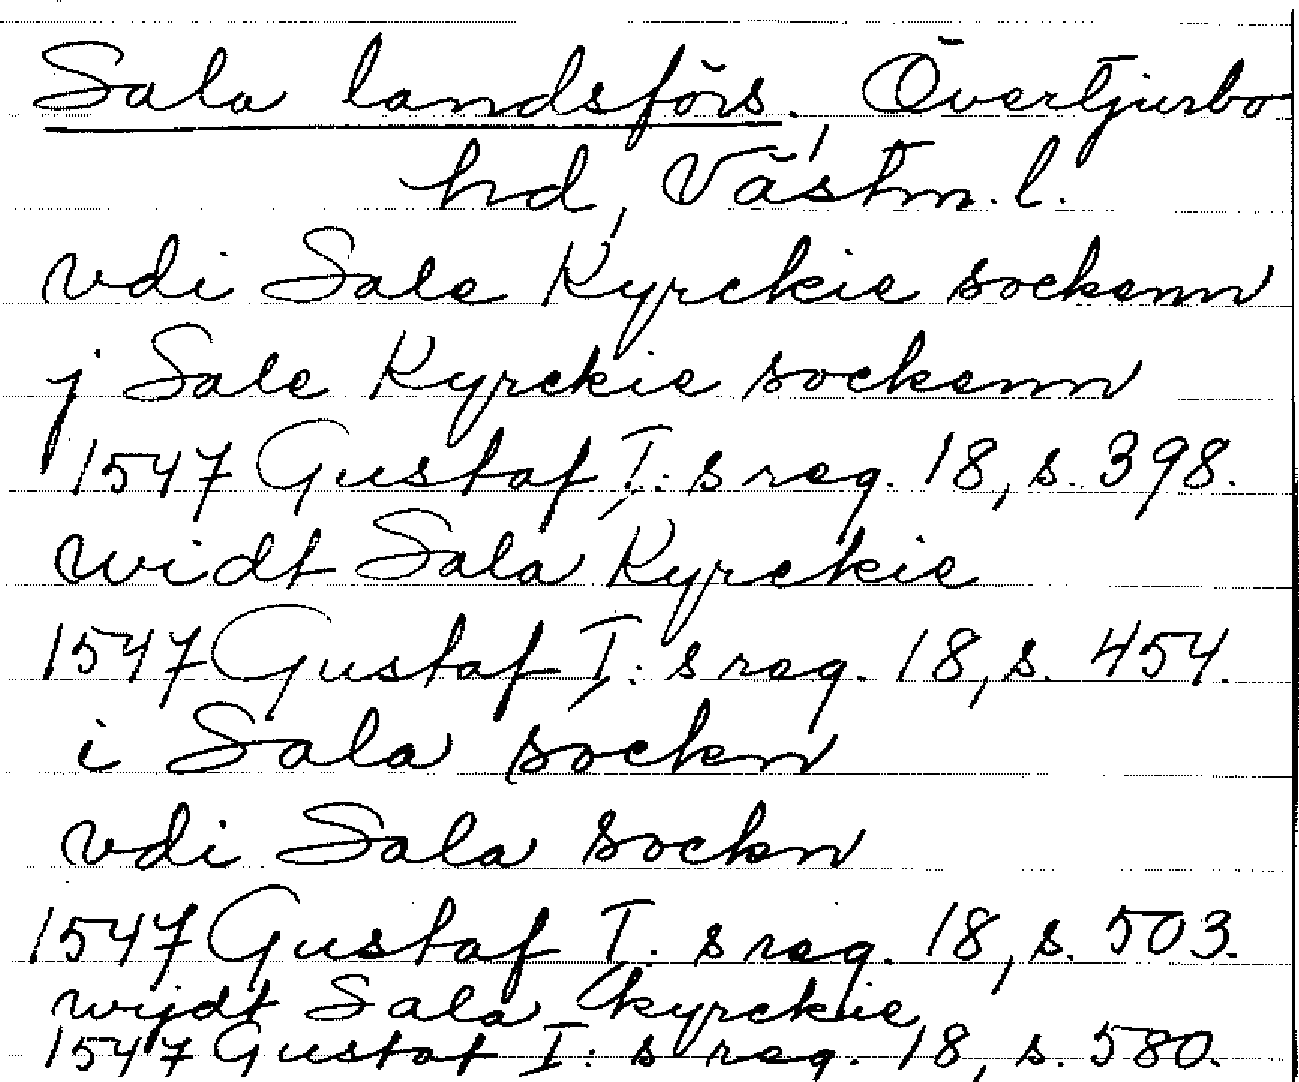 Sala landsförs., Övertjurbo
hd, Västm. l.
vdi Sale Kyrckie sockenn
j Sale Kyrckie sockenn
1547 Gustaf I: s reg. 18, s. 398.
widt Sala Kyrckie
1547 Gustaf I: s reg. 18, s. 454.
i Sala sockn
vdi Sala sockn
1547 Gustaf I: s reg. 18, s. 503.
wijdt Sala kyrckie
1547 Gustaf I: s reg. 18, s. 580.